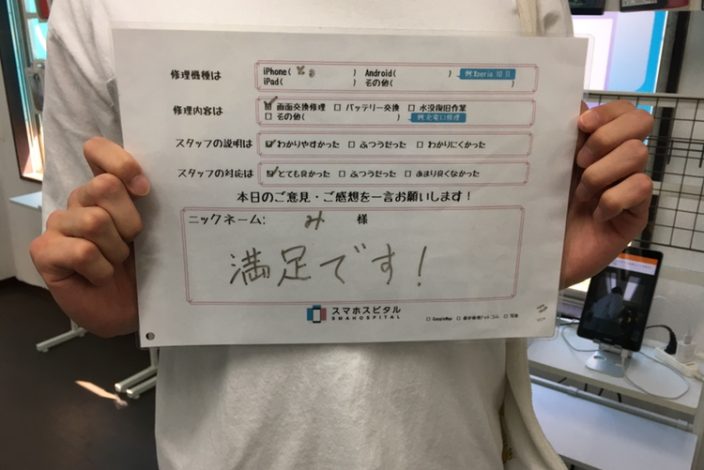 修理機種は
iPhone( ) Android( ) 例:Xperia 10 Ⅱ
iPad( ) その他( )
修理内容は
☑ 画面交換修理 □ バッテリー交換 □ 水没復旧作業
□ その他( )
スタッフの説明は ☑ わかりやすかった □ ふつうだった □ わかりにくかった
スタッフの対応は ☑ とても良かった □ ふつうだった □ あまり良くなかった
本日のご意見・ご感想を一言お願いします!
ニックネーム: み 様
満足です!
スマホスピタル
SMAHOSPITAL
□ GoogleMap